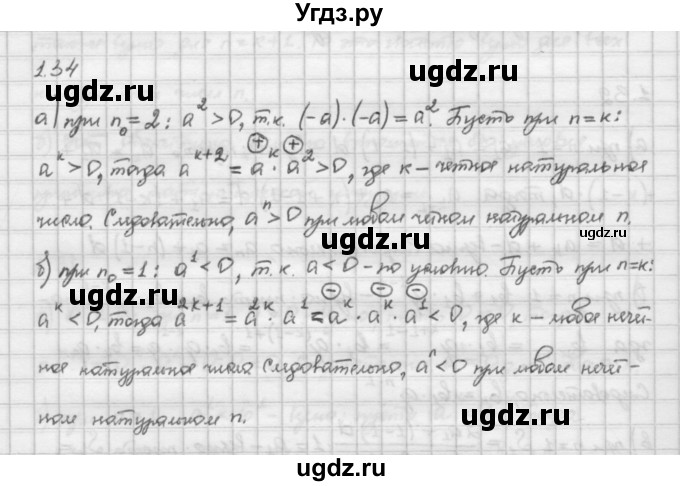 Угдз.ру
1.34
ugdz.ru ugdz.ru
а) при n₀=2: a²>0, т.к. (-a)·(-a)=a². Пусть при n=k:
⊕ ⊕
aᵏ>0, тогда aᵏ⁺²=aᵏ·a²>0, где k – четное натуральное
ugdz.ru
число. Следовательно, aⁿ>0 при любом четном натуральном n.
ugdz.ru ugdz.ru
б) при n₀=1: a¹<0, т.к. a<0 – по условию. Пусть при n=k:
⊖ ⊖ ⊖
aᵏ<0, тогда a²ᵏ⁺¹=a²ᵏ·a¹=aᵏ·aᵏ·a¹<0, где k – любое нечёт-
ugdz.ru
ное натуральное число. Следовательно, aⁿ<0 при любом нечёт-
ugdz.ru ugdz.ru
ном натуральном n.
ugdz.ru